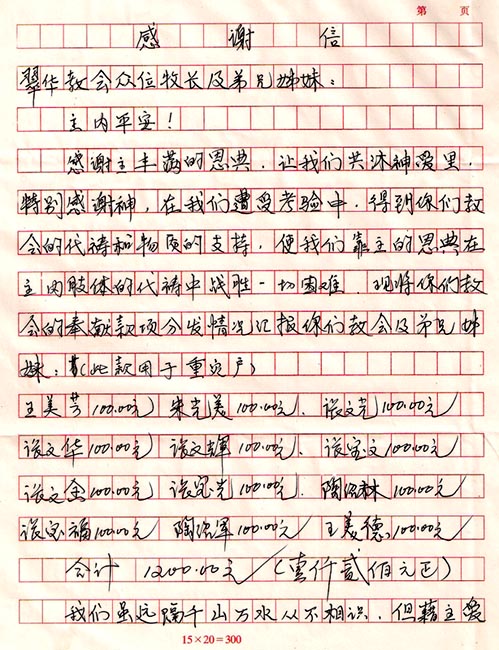 第 页
感 谢 信
翠华教会众位牧长及弟兄姊妹:
主内平安!
感谢主丰满的恩典,让我们共沐神爱里,
特别感谢神,在我们遭受考验中,得到你们教
会的代祷和物质的支持,使我们靠主的恩典在
主内肢体的代祷中战胜一切困难,现将你们教
会的奉献款项分发情况汇报你们教会及弟兄姊
妹:(此款用于重灾户)
王美芳100.00元/ 朱光美100.00元/ 张文光100.00元/
张文华100.00元/ 张文辉100.00元/ 张宝文100.00元/
张文全100.00元/ 张宝光100.00元/ 陶洪林100.00元/
张宝福100.00元/ 陶洪军100.00元/ 王美德100.00元/
合计 1200.00元/(壹仟贰佰元正)
我们虽远隔千山万水从不相识,但藉主爱
15×20=300